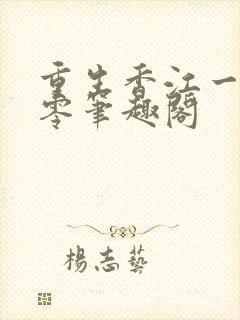 重生香江一
零筆趣閣
楊志藝